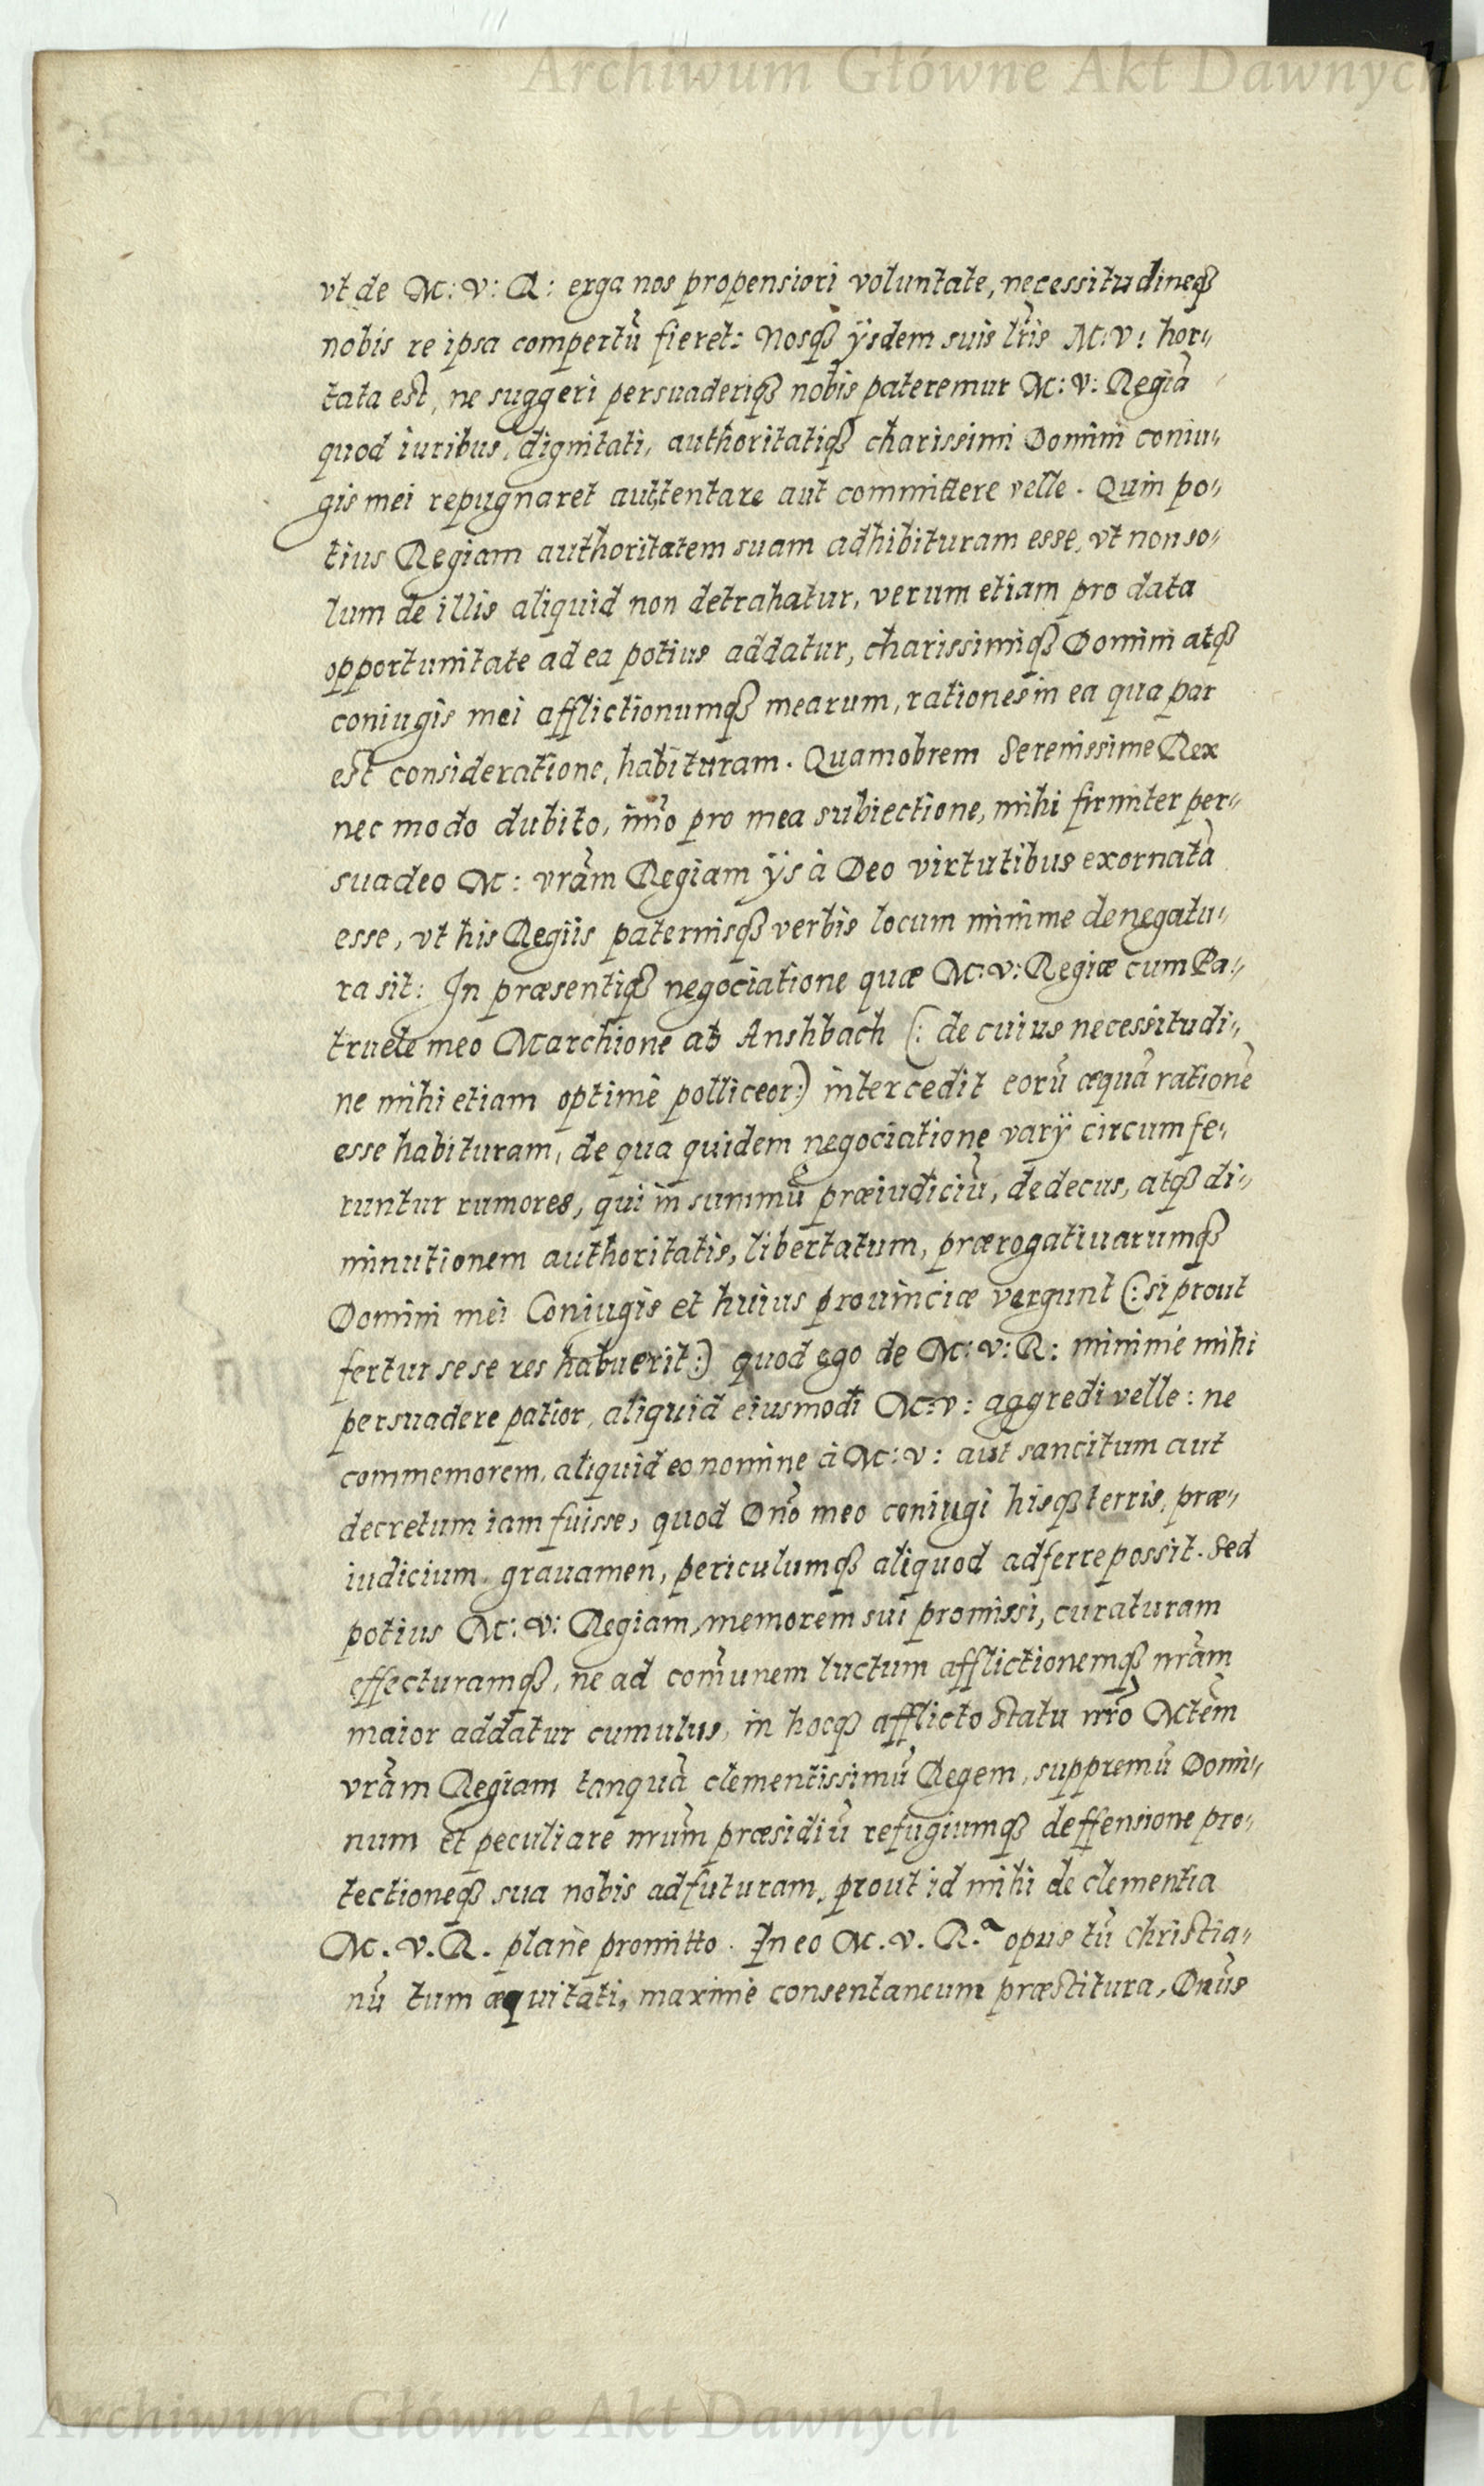 Archiwum Główne Akt Dawnych
vt de M: v: R: erga nos propensiori voluntate, necessitudineq
nobis re ipsa compertū fieret: Nosq ÿsdem suis lr̃is M: v: hor„
tata est, ne suggeri persuaderiq nobis pateremur M: v: Regiā
quod iuribus, dignitati, authoritatiq charissimi Domini coniu„
gis mei repugnaret aut tentare aut committere velle. Quin po„
tius Regiam authoritatem suam adhibituram esse, vt non so„
lum de illis aliquid non detrahatur, verum etiam pro data
opportunitate ad ea potius addatur, charissimiq Domini atq
coniugis mei afflictionumq mearum, rationes in ea qua par
est consideratione, habituram. Quamobrem Serenissime Rex
nec modo dubito, imõ pro mea subiectione, mihi firmiter per„
suadeo M: vrãm Regiam ÿs à Deo virtutibus exornatā
esse, vt his Regiis paternisq verbis locum minime denegatu„
ra sit: In præsentiq negociatione quæ M: v: Regiæ cum Pa„
truele meo Marchione ab Anshbach (: de cuius necessitudi„
ne mihi etiam optimè polliceor:) intercedit eorū æquā rationē
esse habituram, de qua quidem negociatione varÿ circumfe„
runtur rumores, qui in summū præiudiciū, dedecus, atq di„
minutionem authoritatis, libertatum, prærogatiuarumq
Domini mei Coniugis et huius prouinciæ vergunt (: si prout
fertur sese res habuerit:) quod ego de M: v: R: minimè mihi
persuadere patior, aliquid eiusmodi M: v: aggredi velle: ne
commemorem, aliquid eo nomine à M: v: aut sancitum aut
decretum iam fuisse, quod Dnõ meo coniugi hisq terris, præ„
iudicium, grauamen, periculumq aliquod adferre possit. Sed
potius M: v: Regiam, memorem sui promissi, curaturam
effecturamq, ne ad comũnem luctum afflictionemq nrãm
maior addatur cumulus, in hocq afflicto statu nrõ Mtẽm
vrãm Regiam tanquā clementissimū Regem, suppremū Domi„
num et peculiare nrũm præsidiū refugiumq deffensione pro„
tectioneq sua nobis adfuturam, prout id mihi de clementia
M. v. R. planè promitto. In eo M. v. R.ᵃ opus tū christia„
nū tum æquitati, maximè consentaneum præstitura, Dnũs
Archiwum Główne Akt Dawnych